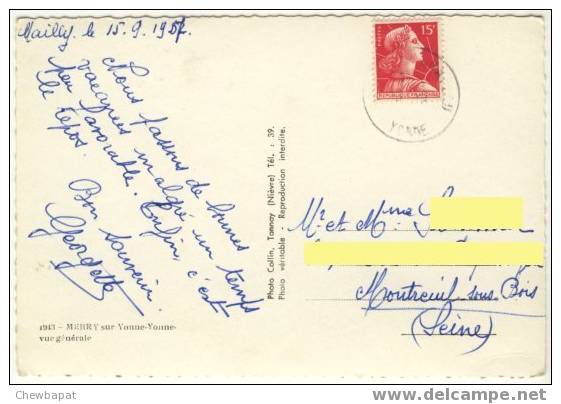 Mailly, le 15.9.1957.
Nous passons de bonnes
vacances malgré un temps
peu favorable. Enfin, c'est
le repos.
Bon souvenir.
Georgette
POSTES
15F
REPUBLIQUE FRANÇAISE
YONNE
Photo Collin, Tannay (Nièvre) Tél. : 39.
Photo véritable - Reproduction interdite.
Mr et Mme
Montreuil-sous-Bois
(Seine)
1943 — MERRY sur Yonne-Yonne-
vue générale
Chewbapat
www.delcampe.net